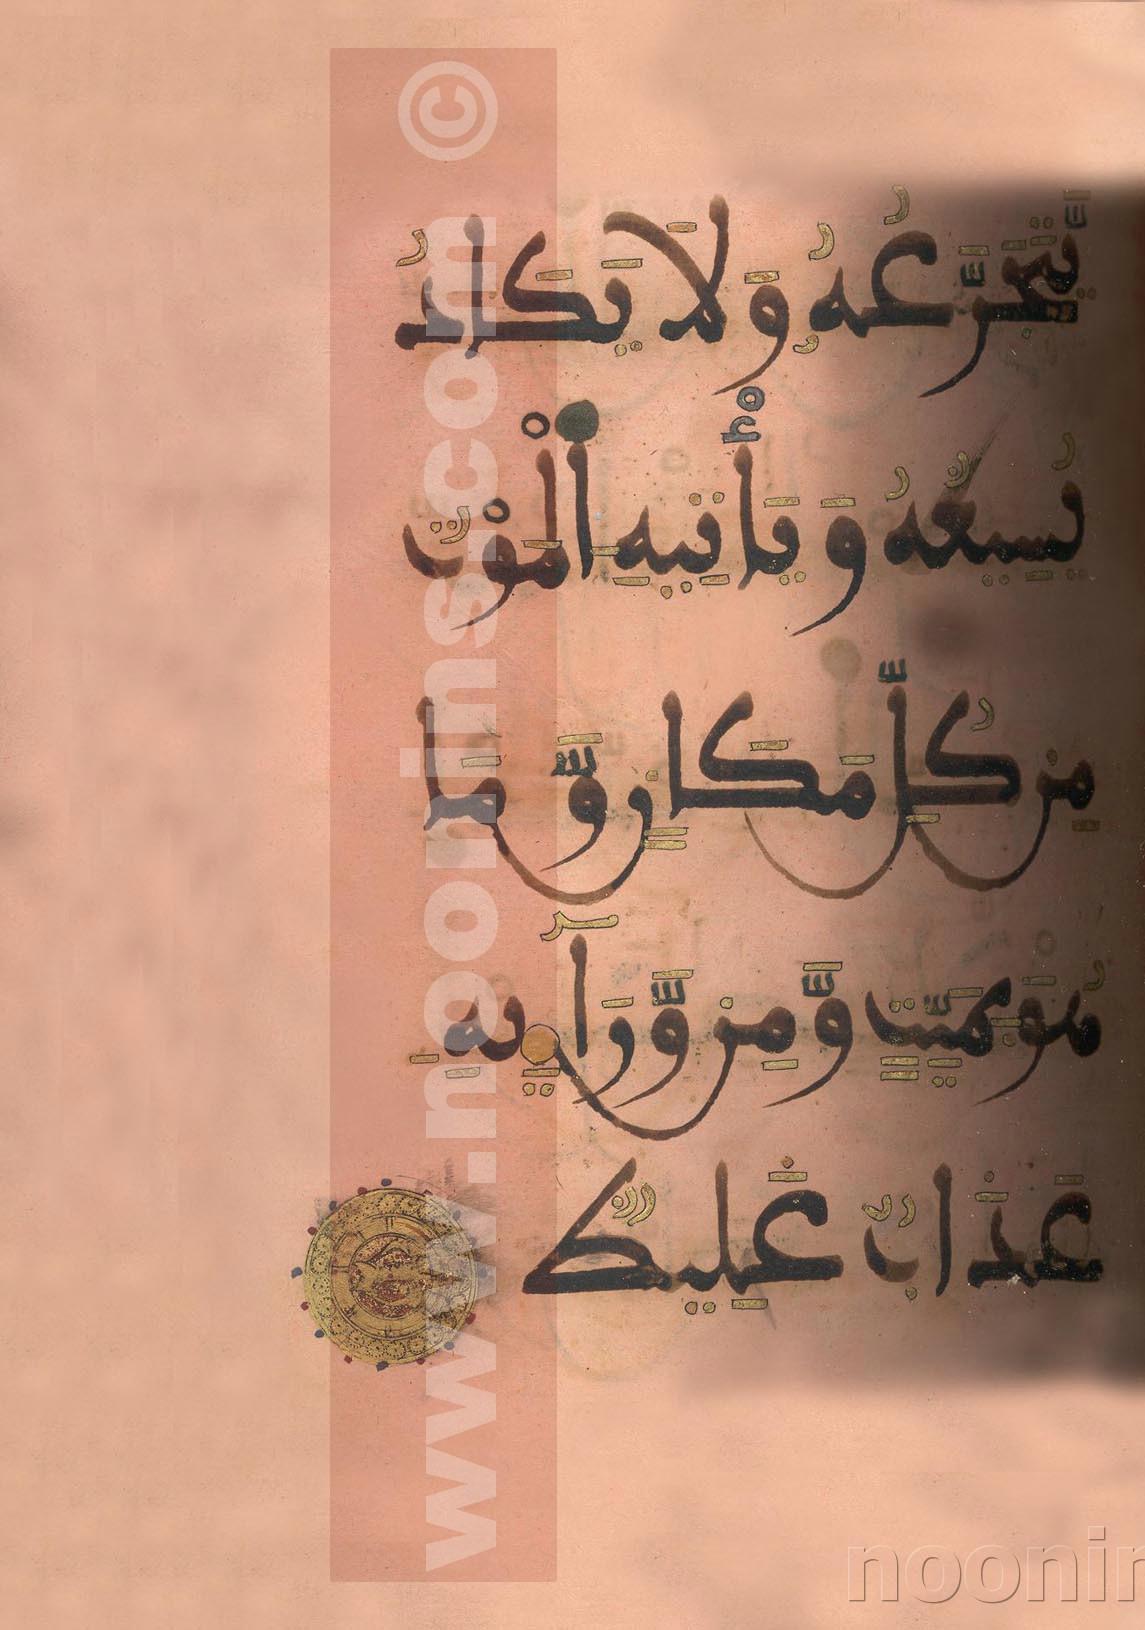 يَتَجَرَّعُهُۥ وَلَا يَكَادُ
يُسِيغُهُۥ وَيَأْتِيهِ اِ۬لْمَوْتُ
مِن كُلِّ مَكَانٖ وَّمَا
هُوَ بِمَيِّتٖ وَّمِنْ وَّرَآئِهِۦ
عَذَابٌ غَلِيظٞ
www.noonins.com ©
noonin